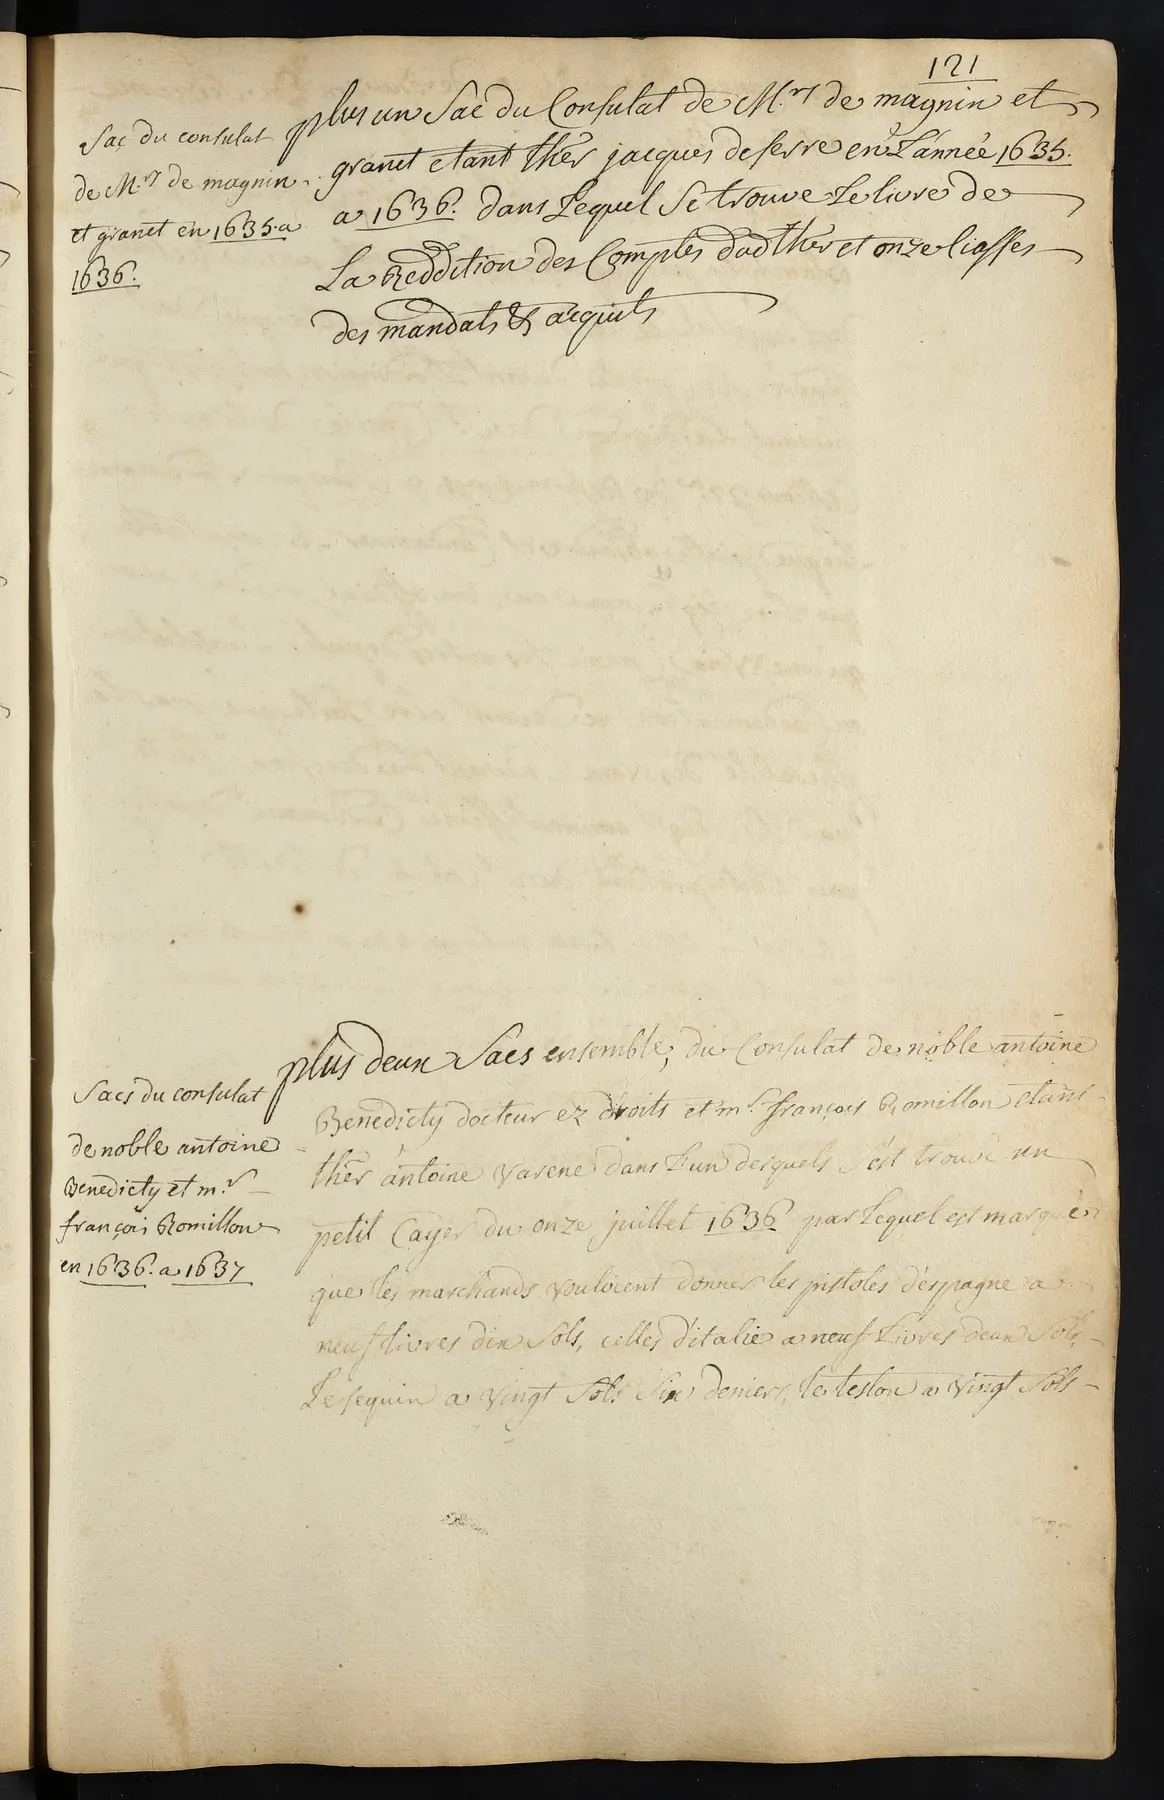 121
Sac du consulat
de M.rs de magnin
et granet en 1635. a
1636.
plus un Sac du Consulat de M.rs de magnin et
granet etant ther jacques deserre en L'année 1635.
a 1636. dans Lequel Se trouve Le livre de
La Reddition des Comptes dud ther et onze liasses
des mandats & acquits
Sacs du consulat
de noble antoine
Benedicty et m.r
françois Romillon
en 1636. a 1637
plus deux Sacs ensemble, du Consulat de noble antoine
Benedicty docteur ez droits et m.r françois Romillon etant
ther antoine varene dans L'un desquels s'est trouvé un
petit Cayer du onze juillet 1636 par Lequel est marqué
que les marchands vouloient donner les pistoles d'espagne a
neuf livres dix Sols, celles d'italie a neuf Livres deux Sols,
Le sequin a vingt Sols Six deniers, le teston a vingt Sols